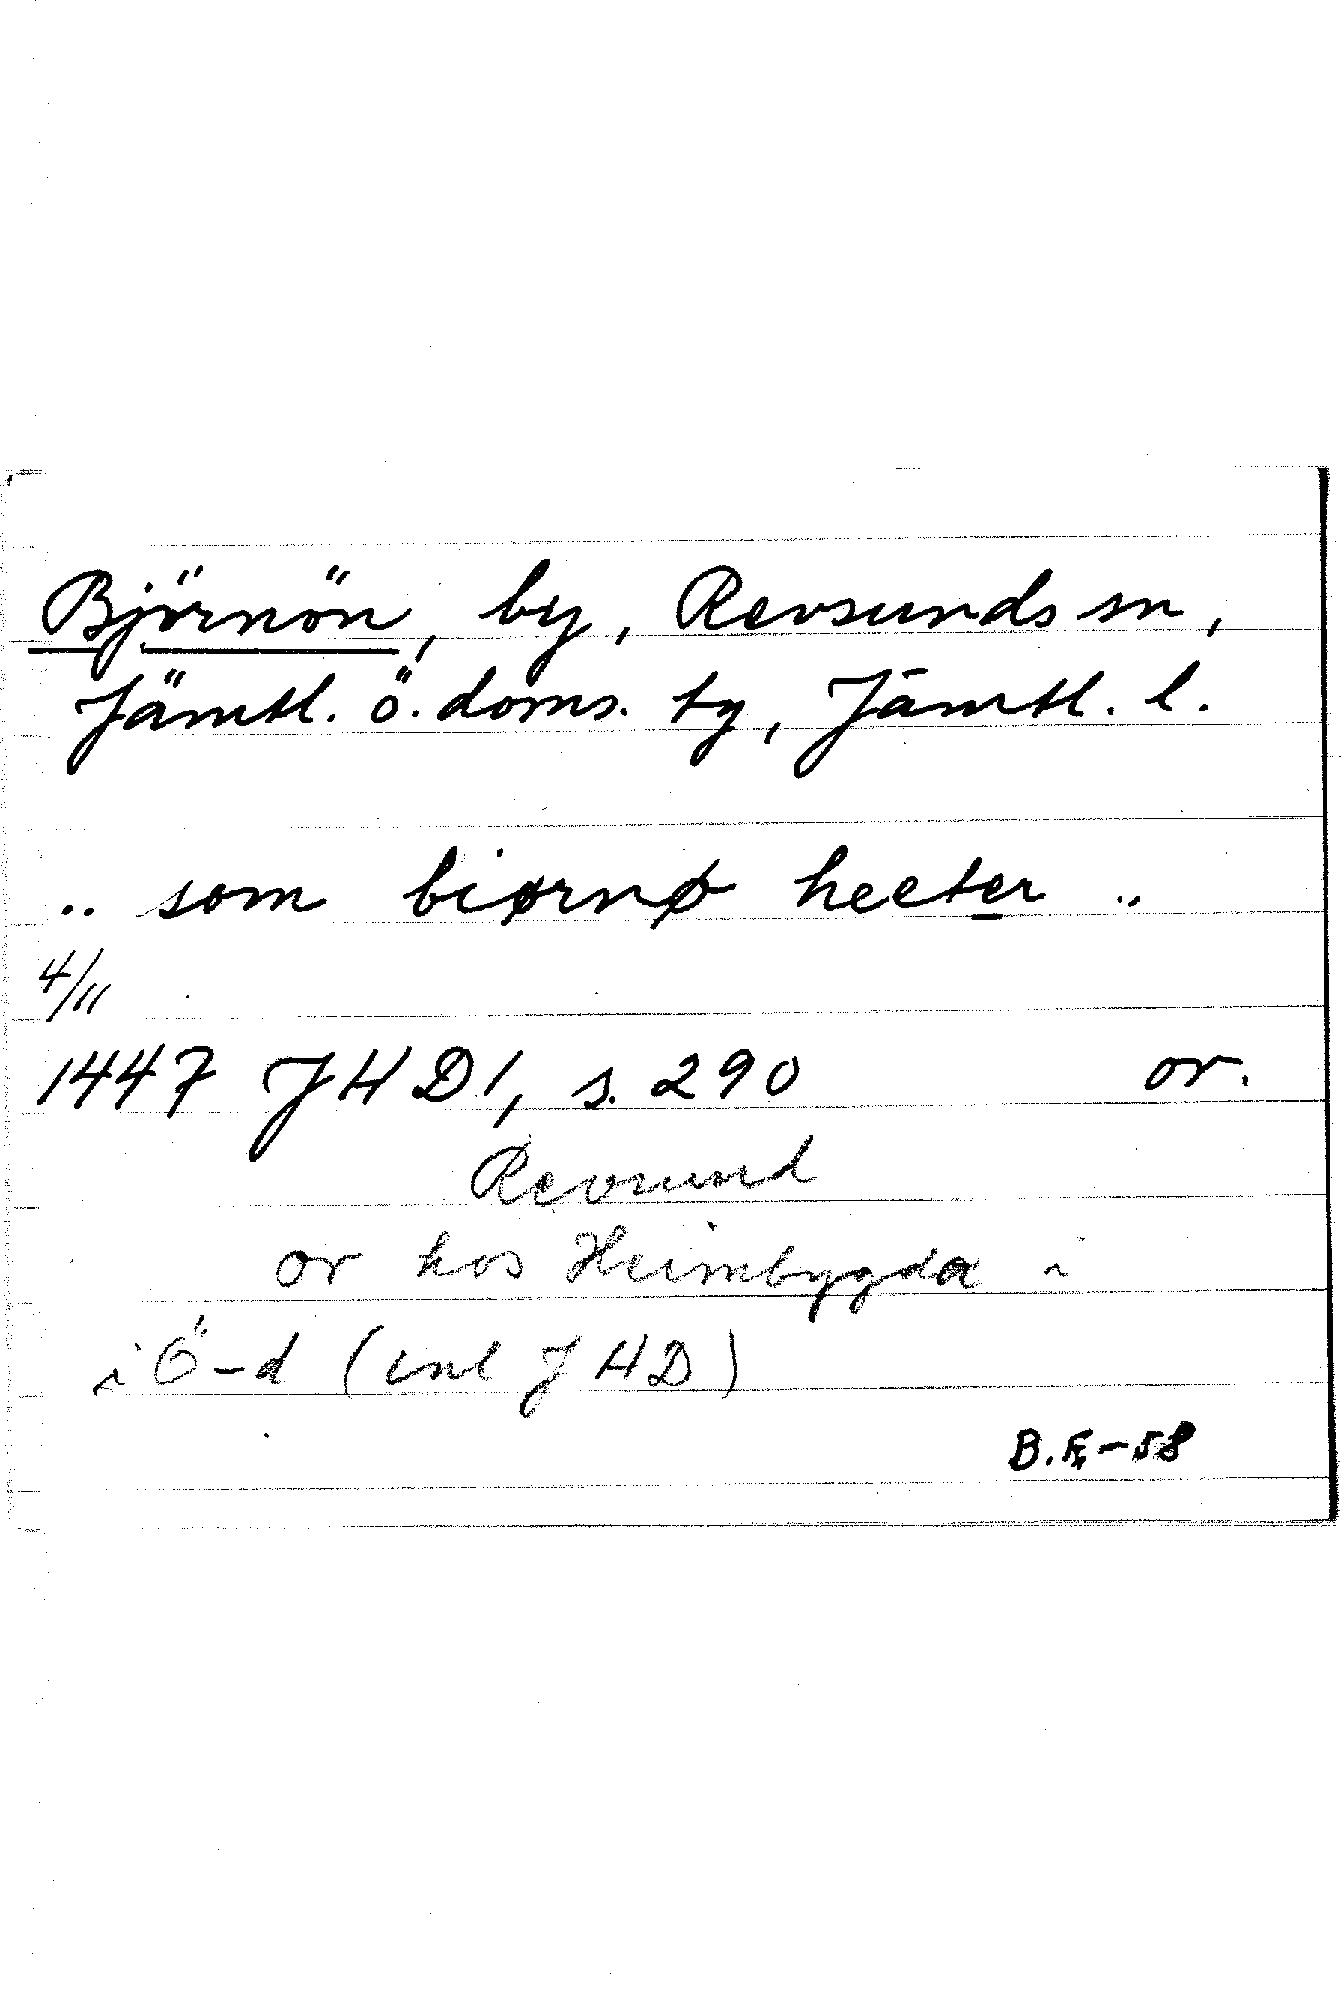 Björnön, by, Revsunds sn,
Jämtl. ö. doms. tg, Jämtl. l.
.. som biørnø heeter ..
4/11
1447 JHD1, s. 290 or.
Revsund
or hos Heimbygda i
i Ö-d (enl JHD)
B.F.-58